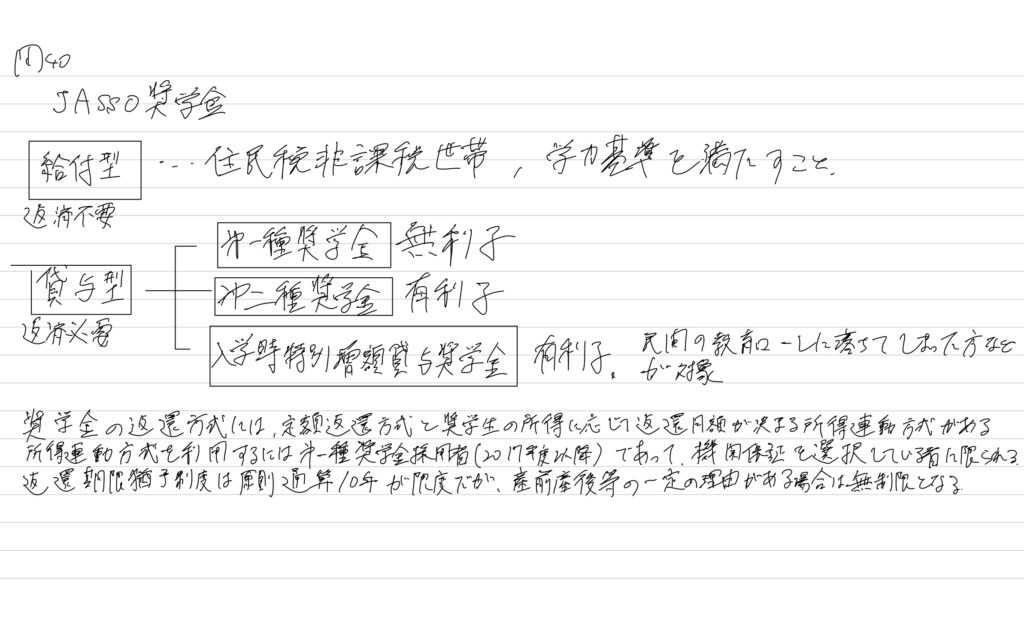 問40
JASSO奨学金
給付型 … 住民税非課税世帯, 学力基準を満たすこと.
返済不要
第一種奨学金 無利子
貸与型
第二種奨学金 有利子
返済必要
入学時特別増額貸与奨学金 有利子。民間の教育ローンに落ちてしまった方など
が対象
奨学金の返還方式には,定額返還方式と奨学生の所得に応じて返還月額が決まる所得連動方式がある
所得連動方式を利用するには第一種奨学金採用者(2017年度以降)であって,機関保証を選択している者に限られる
返還期限猶予制度は原則通算10年が限度だが,産前産後等の一定の理由がある場合は無制限となる